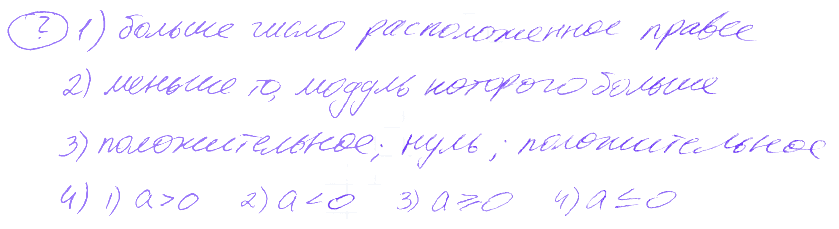 ? 1) больше число расположенное правее
2) меньше то, модуль которого больше
3) положительное; нуль; положительное
4) 1) a>0 2) a<0 3) a⩾0 4) a≤0